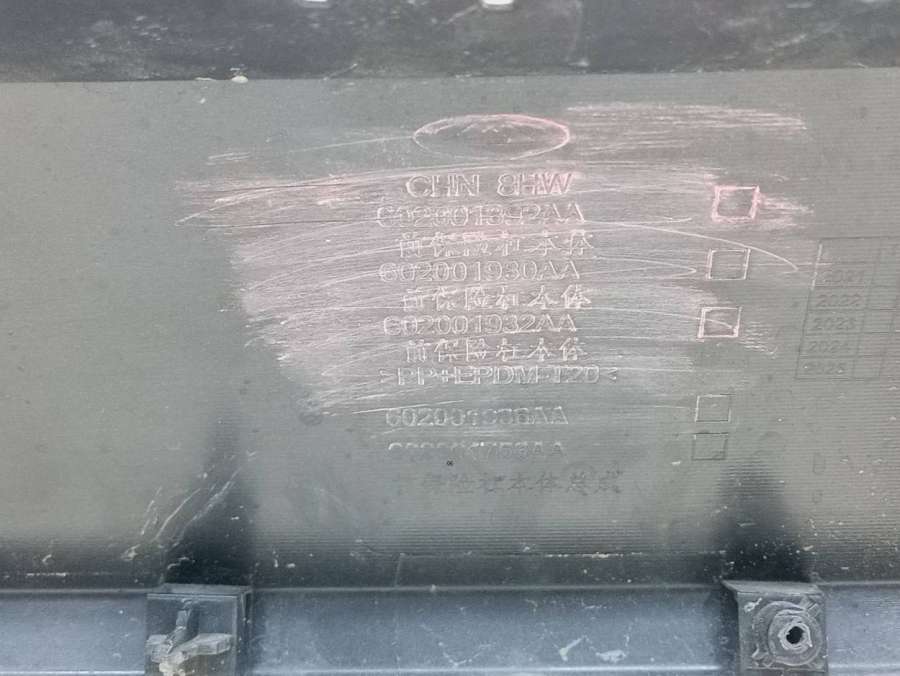 CHN 8HW
602001342AA
前保险杠本体
602001930AA
前保险杠本体
602001932AA
前保险杠本体
>PP+EPDM-T20<
前保险杠本体总成
2021
2022
2023
2024
2025